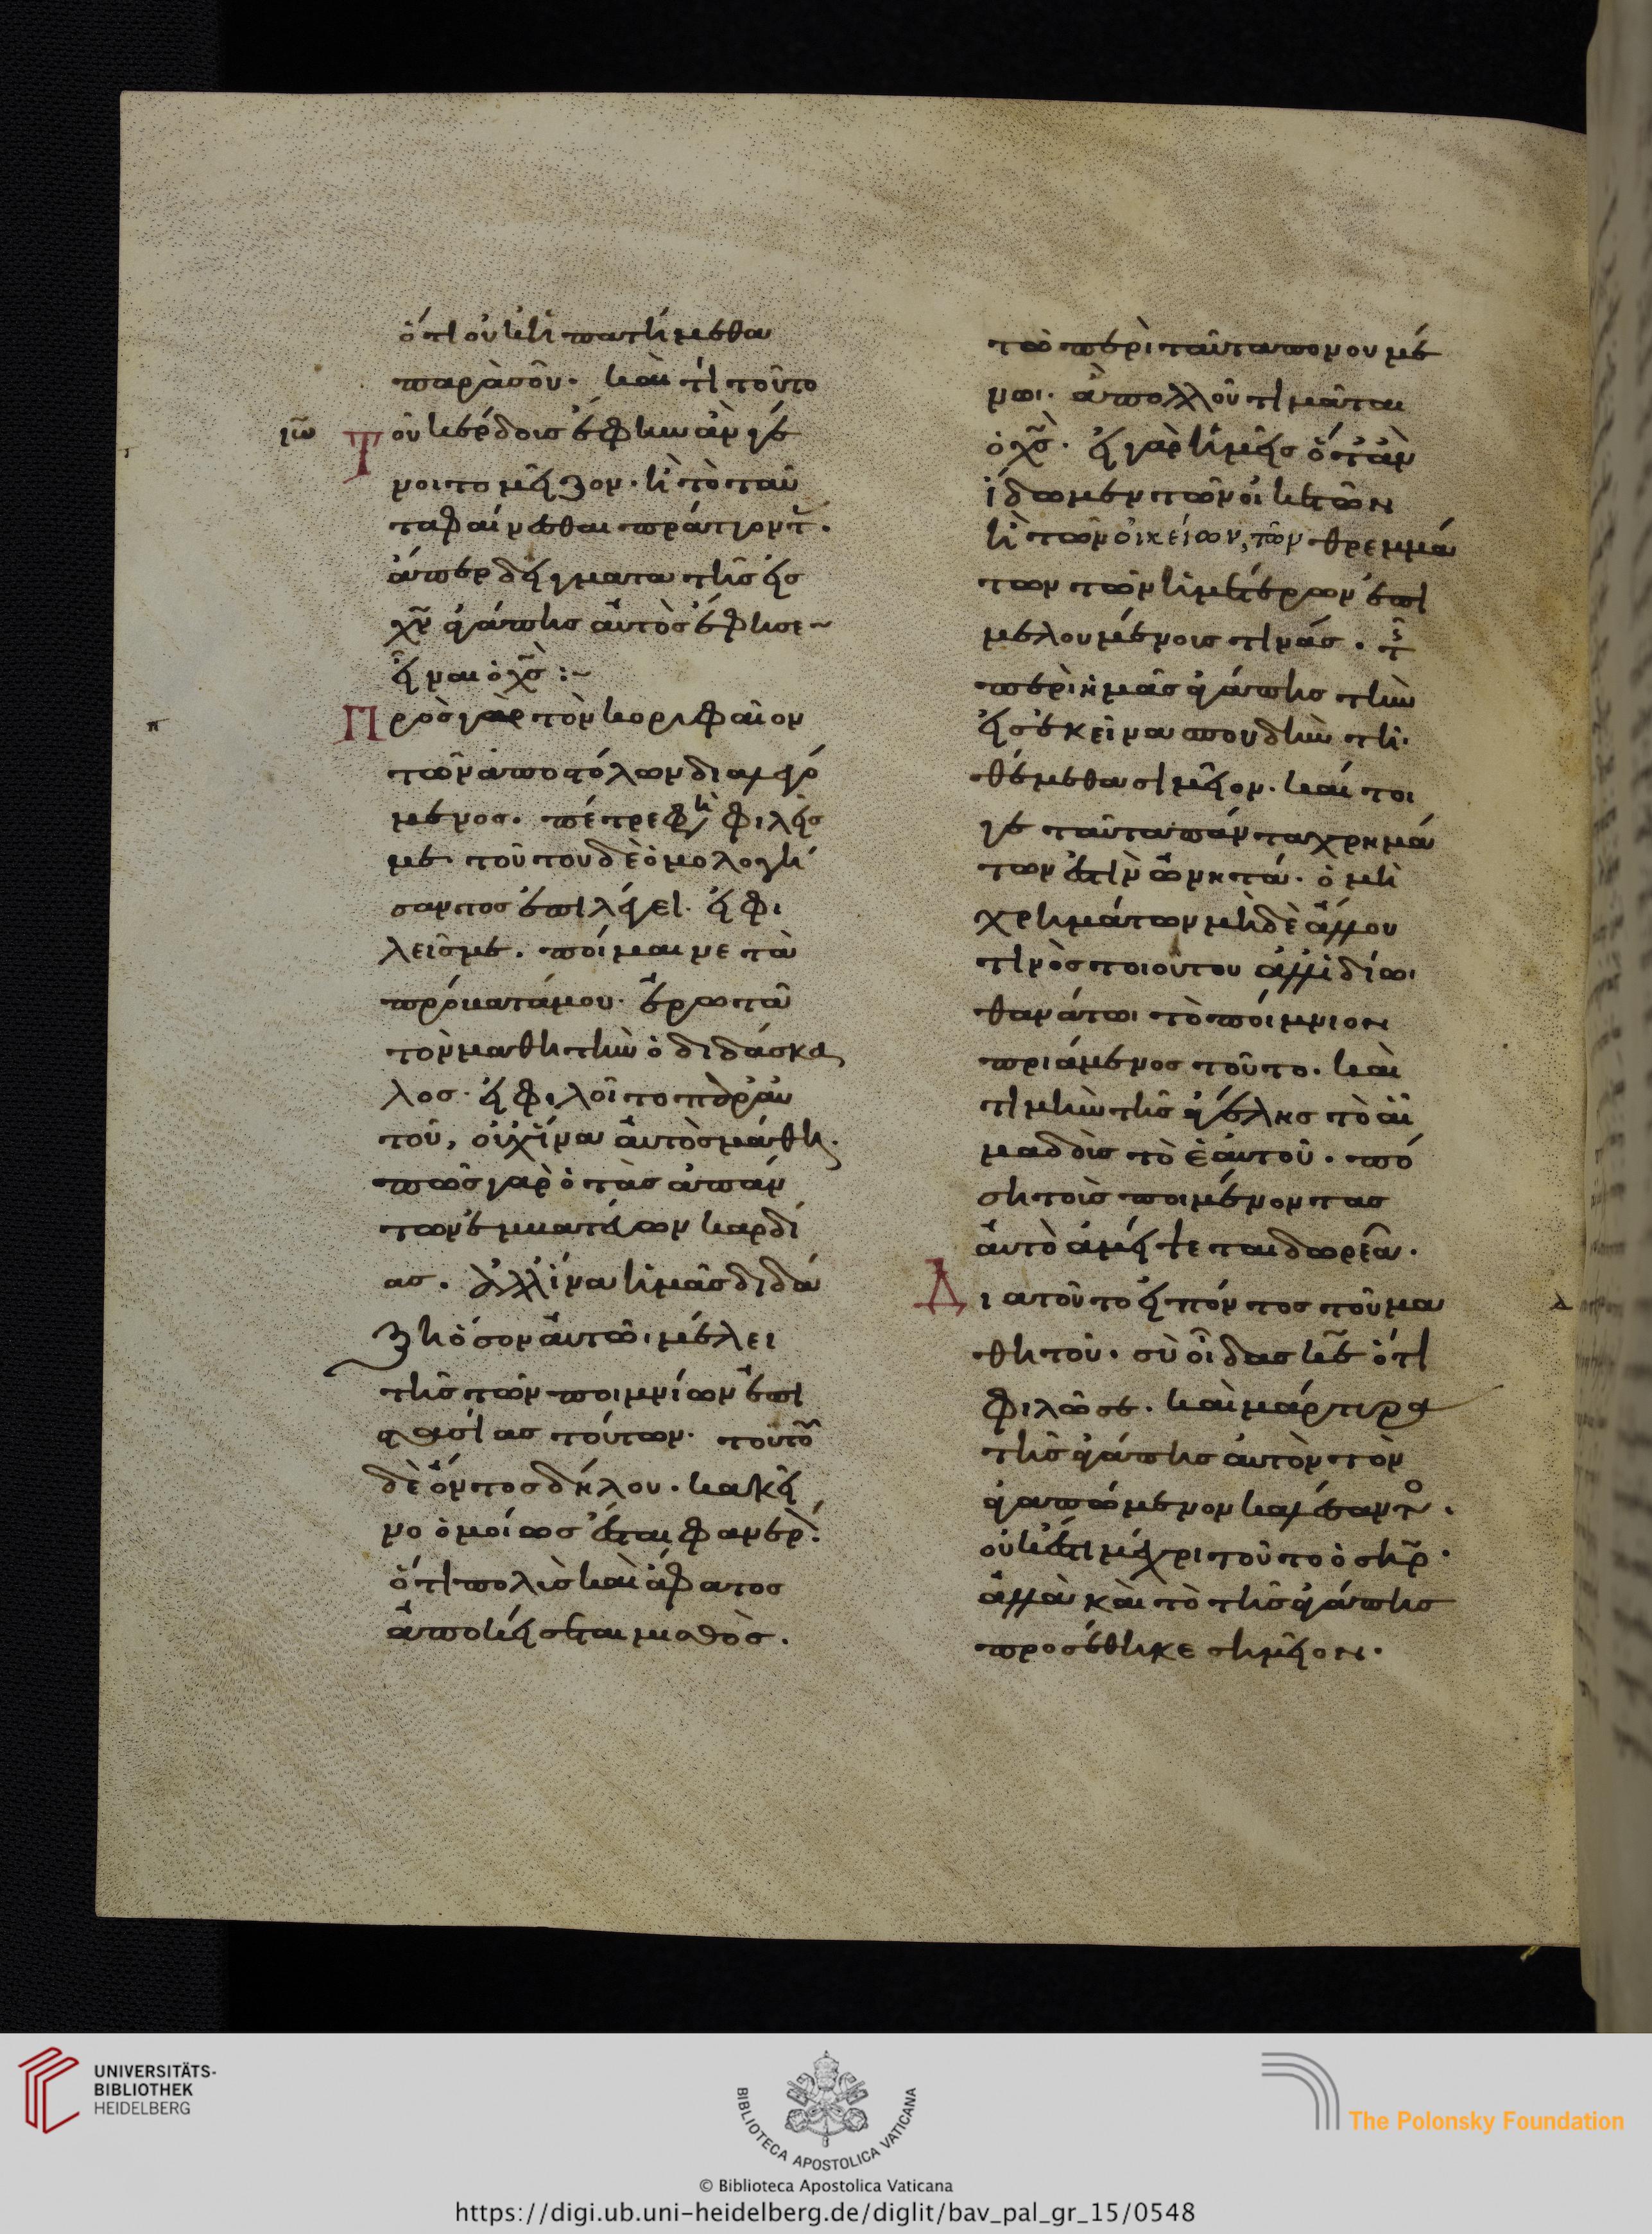 ὅτι οὐκ ἠπατήμεθα
παρὰ σοῦ. καὶ τί τοῦτο
ἰῶ
Τοῦ κέρδους ἔφην ἂν γέ
νοιτο μεῖζον. ἢ τὸ ταῦ
τα φαίνεσθαι πράττοντ̅.
ἅπερ δείγματα τῆς εἰς
χ̅ν̅ ἀγάπης αὐτὸς ἔφησε~
εἶναι ὁ χ̅ς̅ :~
π
Πρὸς γὰρ τὸν κορυφαῖον
τῶν ἀποστόλων διαλεγό
μενος. πέτρε φησὶ φιλεῖς
με. τούτου δὲ ὁμολογή
σαντος ἐπιλέγει. εἰ φι
λεῖς με. ποίμαινε τὰ
πρόβατά μου. ἐρωτᾷ
τὸν μαθητὴν ὁ διδάσκα
λος. εἰ φιλοῖτο παρ' αὐ
τοῦ, οὐχ ἵνα αὐτὸς μάθῃ.
πῶς γὰρ ὁ τὰς ἁπάν
των ἐμβατεύων καρδί
ας. ἀλλ' ἵνα ἡμᾶς διδά
ξῃ ὅσον αὐτῷ μέλει
τῆς τῶν ποιμνίων ἐπι
στασίας τούτων. τούτου
δὲ ὄντος δήλου. κἀκεῖ
νο ὁμοίως ἔσται φανερό̅.
ὅτι πολὺς καὶ ἄφατος
ἀποκείσεται μισθὸς.
τῷ περὶ ταῦτα πονουμέ
νωι. ἃ πολλοῦ τιμᾶται
ὁ χ̅ς̅. εἰ γὰρ ἡμεῖς ὅταν
ἴδωμεν τῶν οἰκετῶν
ἢ τῶν οἰκείων, τῶν θρεμμά
των τῶν ἡμετέρων ἐπι
μελουμένους τινάς. τ̅
περὶ ἡμᾶς ἀγάπης τὴν
εἰς ἐκεῖνα σπουδὴν τι
θέμεθα σημεῖον. καίτοι
γε ταῦτα πάντα χρημά
των ἐστὶν ὠνητά. ὁ μὴ
χρημάτων μηδὲ ἄλλου
τινὸς τοιούτου ἀλλ' ἰδίωι
θανάτωι τὸ ποίμνιον
πριάμενος τοῦτο. καὶ
τιμὴν τῆς ἀγέλης τὸ αἷ
μα δοὺς τὸ ἑαυτοῦ. πό
σῃ τοὺς ποιμαίνοντας
αὐτὸ ἀμείψεται δωρεᾷ.
Διατοῦτο εἰπόντος τοῦ μα
θητοῦ. σὺ οἶδας κ̅ε̅ ὅτι
φιλῶ σε. καὶ μάρτυρα
τῆς ἀγάπης αὐτὸν τὸν
ἀγαπώμενον καλέσαντος.
οὐκ ἔστη μέχρι τούτου ὁ σ̅η̅ρ̅.
ἀλλὰ καὶ τὸ τῆς ἀγάπης
προσέθηκε σημεῖον.
UNIVERSITÄTS-
BIBLIOTHEK
HEIDELBERG
BIBLIOTECA APOSTOLICA VATICANA
The Polonsky Foundation
© Biblioteca Apostolica Vaticana
https://digi.ub.uni-heidelberg.de/diglit/bav_pal_gr_15/0548